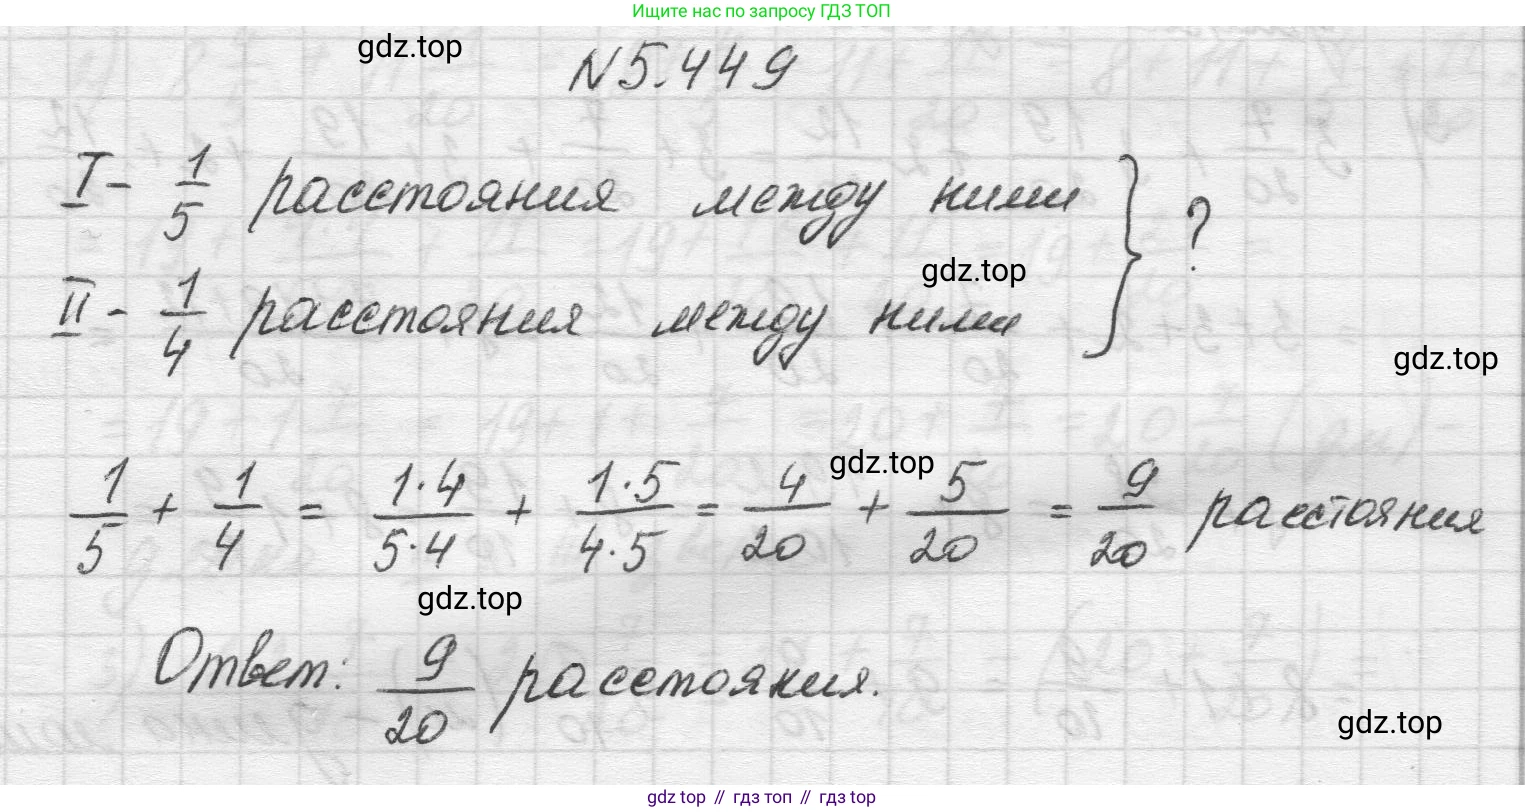 Ищите нас по запросу ГДЗ ТОП
gdz.top
N 5.449
I - 1/5 расстояния между ними
gdz.top
II - 1/4 расстояния между ними } ?
gdz.top
gdz.top
1/5 + 1/4 = 1·4/5·4 + 1·5/4·5 = 4/20 + 5/20 = 9/20 расстояния
gdz.top
Ответ: 9/20 расстояния.
gdz.top
gdz top // гдз топ // гдз top